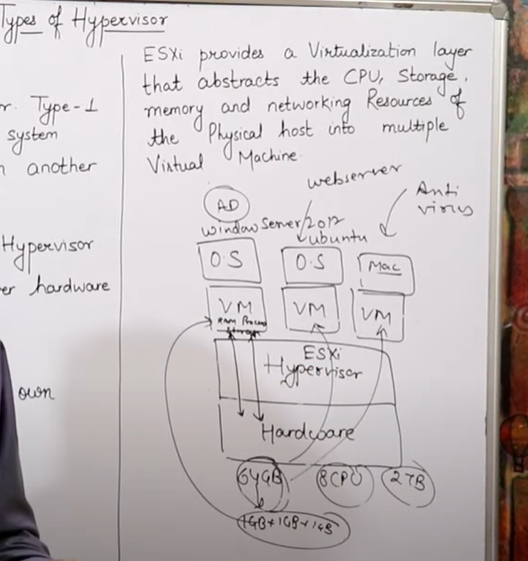 Types of Hypervisor
r. Type-1
system
another
Hypervisor
er hardware
own
ESXi provides a Virtualization layer
that abstracts the CPU, Storage,
memory and networking Resources of
the Physical host into multiple
Virtual Machine.
webserver
Anti
virus
AD
Window Server/2012
ubuntu
O.S
O.S
Mac
VM
RAM
VM
VM
ESXi
Hypervisor
Hardware
64GB
8CPU
2TB
1GB+1GB+1GB